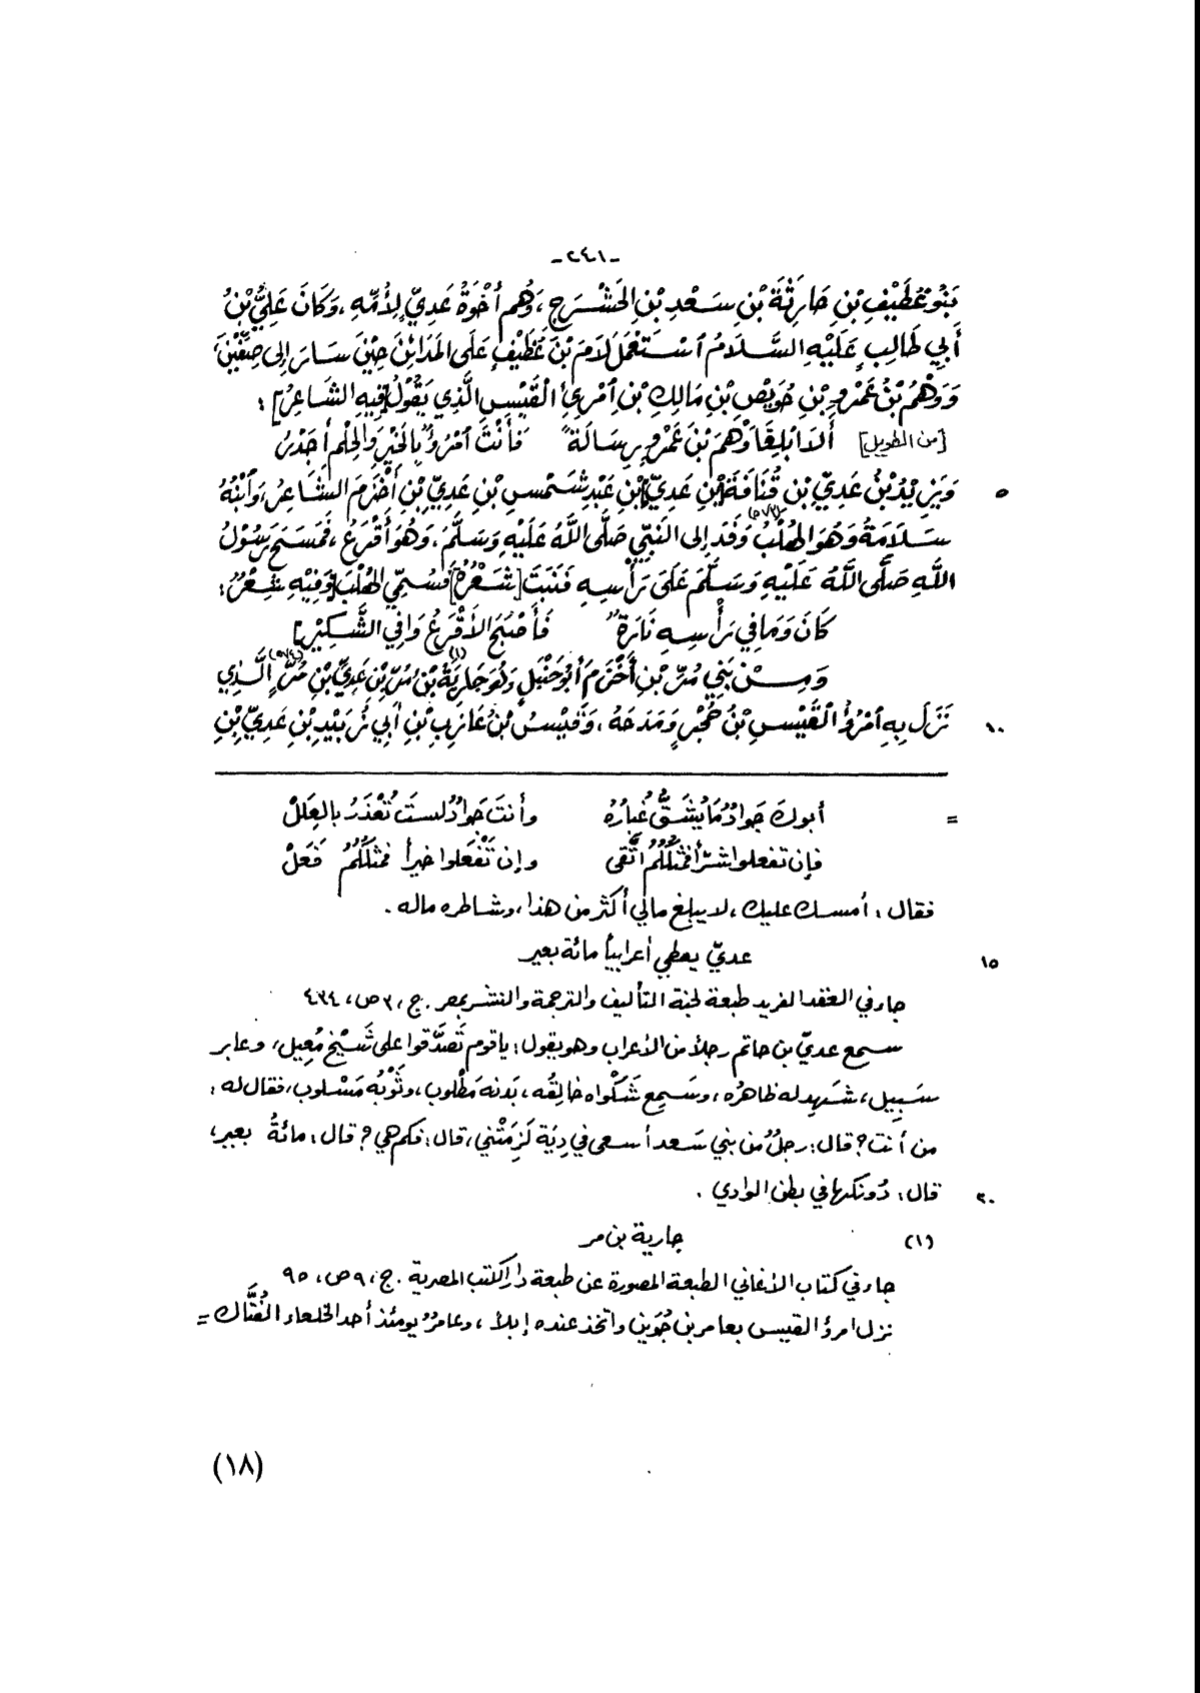 -٢٤١-
بَنُو غُطَيْفِ بْنِ حَارِثَةَ بْنِ سَعْدِ بْنِ الحَشْرَجِ ، وَهُم أُخْوَةُ عَدِيٍّ لِأُمِّهِ ، وَكَانَ عَلِيُّ بْنُ
أَبِي طَالِبٍ عَلَيْهِ السَّلَامُ ٱسْتَعْمَلَ لَامَ بْنَ غُطَيْفٍ عَلَى المَدَائِنَ حِيْنَ سَارَ إِلى صِفِّيْنَ ،
وَوَهْمُ بْنُ عَمْرِو بْنِ حُوَيْصِ بْنِ مَالِكِ بْنِ ٱمْرِئِ القَيْسِ الَّذِي يَقُوْلُ [فِيهِ الشَّاعِرُ] :
[من الطويل] أَلَا ابْلِغَا وَهْمَ بْنَ عَمْرٍو رِسَالَةً فَأَنْتَ ٱمْرُؤٌ بِالخَيْرِ وَالحِلْمِ أَجْدَرُ
٥ وَيَزِيْدُ بْنُ عَدِيِّ بْنِ قُنَافَةَ [بْنِ عَدِيِّ] بْنِ عَبْدِ شَمْسِ بْنِ عَدِيِّ بْنِ أَخْزَمَ الشَّاعِرُ، وَٱبْنُهُ
سَلَامَةُ وَهُوَ الهُلْبُ (٥٧٣) وَفَدَ إلى النَّبِيِّ صَلَّى اللَّهُ عَلَيْهِ وَسَلَّمَ ، وَهُوَ أَقْرَعُ ، فَمَسَحَ رَسُوْلُ
اللَّهِ صَلَّى اللَّهُ عَلَيْهِ وَسَلَّمَ عَلَى رَأْسِهِ فَنَبَتَ [شَعْرُهُ] فَسُمِّيَ الهُلْبَ [وَفِيْهِ شِعْرٌ :
كَانَ وَمَا فِي رَأْسِهِ نَارَةٌ فَأَصْبَحَ الأَقْرَعُ وَافِي الشَّكِيْرِ]
وَمِنْ بَنِي مُرِّ بْنِ أَخْزَمَ أَبُو حَنْبَلٍ وَهُوَ جَارِيَةُ (١) بْنُ مُرِّ بْنِ عَدِيِّ بْنِ مُرٍّ (٥٧٤) الَّذِي
١٠ نَزَلَ بِهِ ٱمْرُؤُ القَيْسِ بْنُ حُجْرٍ وَمَدَحَهُ ، وَقَيْسُ بْنُ عَازِبِ بْنِ أَبِي زُبَيْدِ بْنِ عَدِيِّ بْنِ
= أبوك جَوادٌ مَا يُشَقُّ غُبارُهُ وأنتَ جَوادٌ لستَ تُعْذَرُ بالعِلَلْ
فإن تفعلوا شرّاً فمثلُكُمُ اتَّقى وإن تَفْعَلوا خيراً فمثلُكُمُ فَعَلْ
فقال : أمسك عليك ، لا يبلغ مالي أكثر من هذا ، وشاطره ماله .
١٥ عديّ يعطي أعرابياً مائة بعير
جاء في العقد الفريد طبعة لجنة التأليف والترجمة والنشر بمصر . ج ، ٣ ص ، ٤٣٤
سمع عديّ بن حاتم رجلاً من الأعراب وهو يقول : يا قوم تَصَدَّقوا على شَيْخٍ مُعِيل ، وعابر
سَبِيل ، شَهِد له ظاهرُه ، وسَمِع شَكْواه خالِقُه ، بَدنه مَطْلوب ، وثَوْبُه مَسْلوب ، فقال له :
من أنت ؟ قال : رجلٌ من بني سَعد أسعى في دِيَة لَزِمَتْني ، قال : فكم هي ؟ قال : مائةُ بعير ،
٢٠ قال : دُونكها في بطن الوادي .
(١) جارية بن مر
جاء في كتاب الأغاني الطبعة المصورة عن طبعة دار الكتب المصرية . ج ، ٩ ص ، ٩٥
نزل امرؤ القيس بعامر بن جُوَين واتخذ عنده إبلاً ، وعامرٌ يومئذ أحد الخلعاء الفُتَّاك =
(١٨)